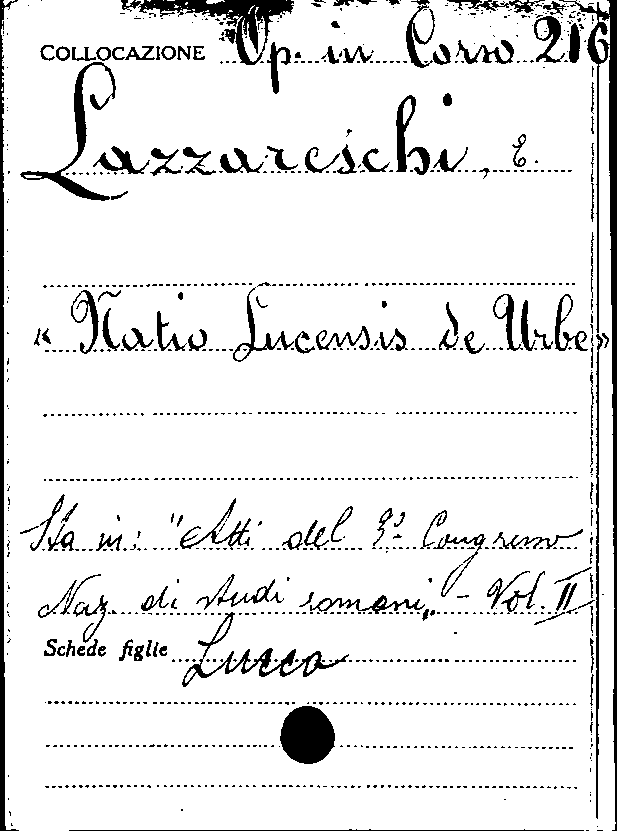 COLLOCAZIONE Op. in Corso 216
Lazzareschi, E.
« Natio Lucensis de Urbe »
Sta in: "Atti del 3º Congresso
Naz. di studi romani„ - Vol. II
Schede figlie Lucca